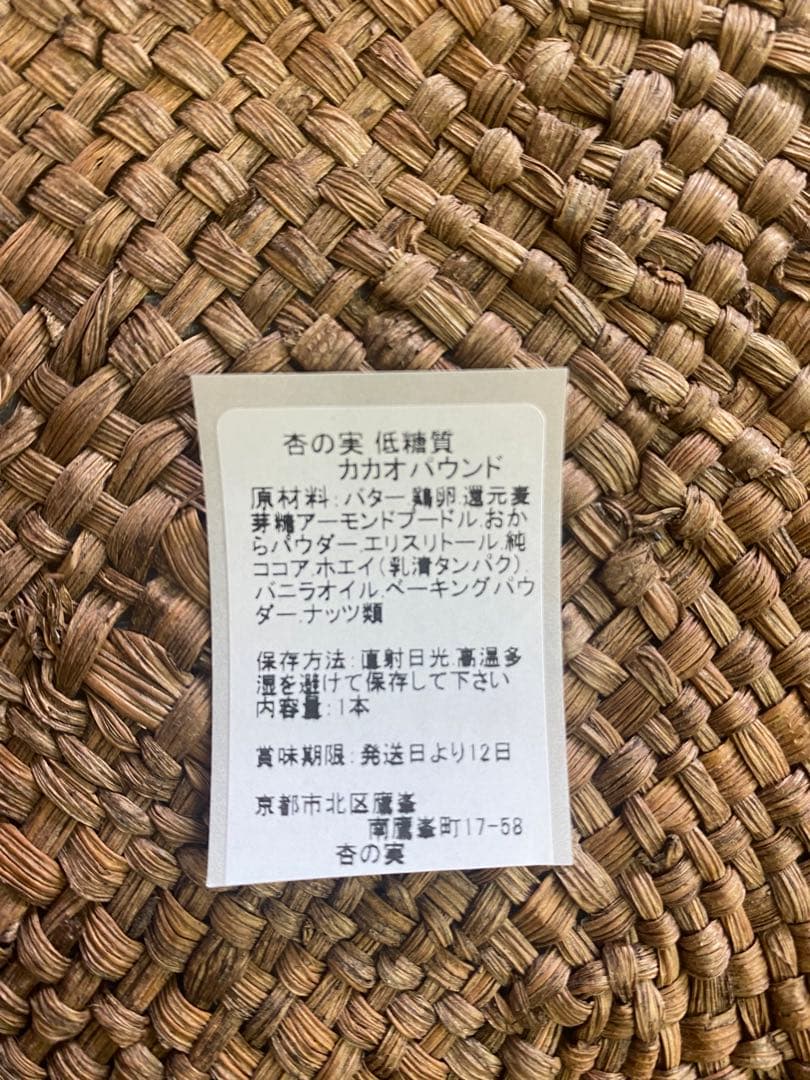 杏の実 低糖質
カカオパウンド
原材料:バター.鶏卵.還元麦
芽糖アーモンドプードル.おか
らパウダー.エリスリトール.純
ココア.ホエイ(乳清タンパク).
バニラオイル.ベーキングパウ
ダー.ナッツ類
保存方法:直射日光.高温多
湿を避けて保存して下さい
内容量:1本
賞味期限:発送日より12日
京都市北区鷹峯
南鷹峯町17-58
杏の実